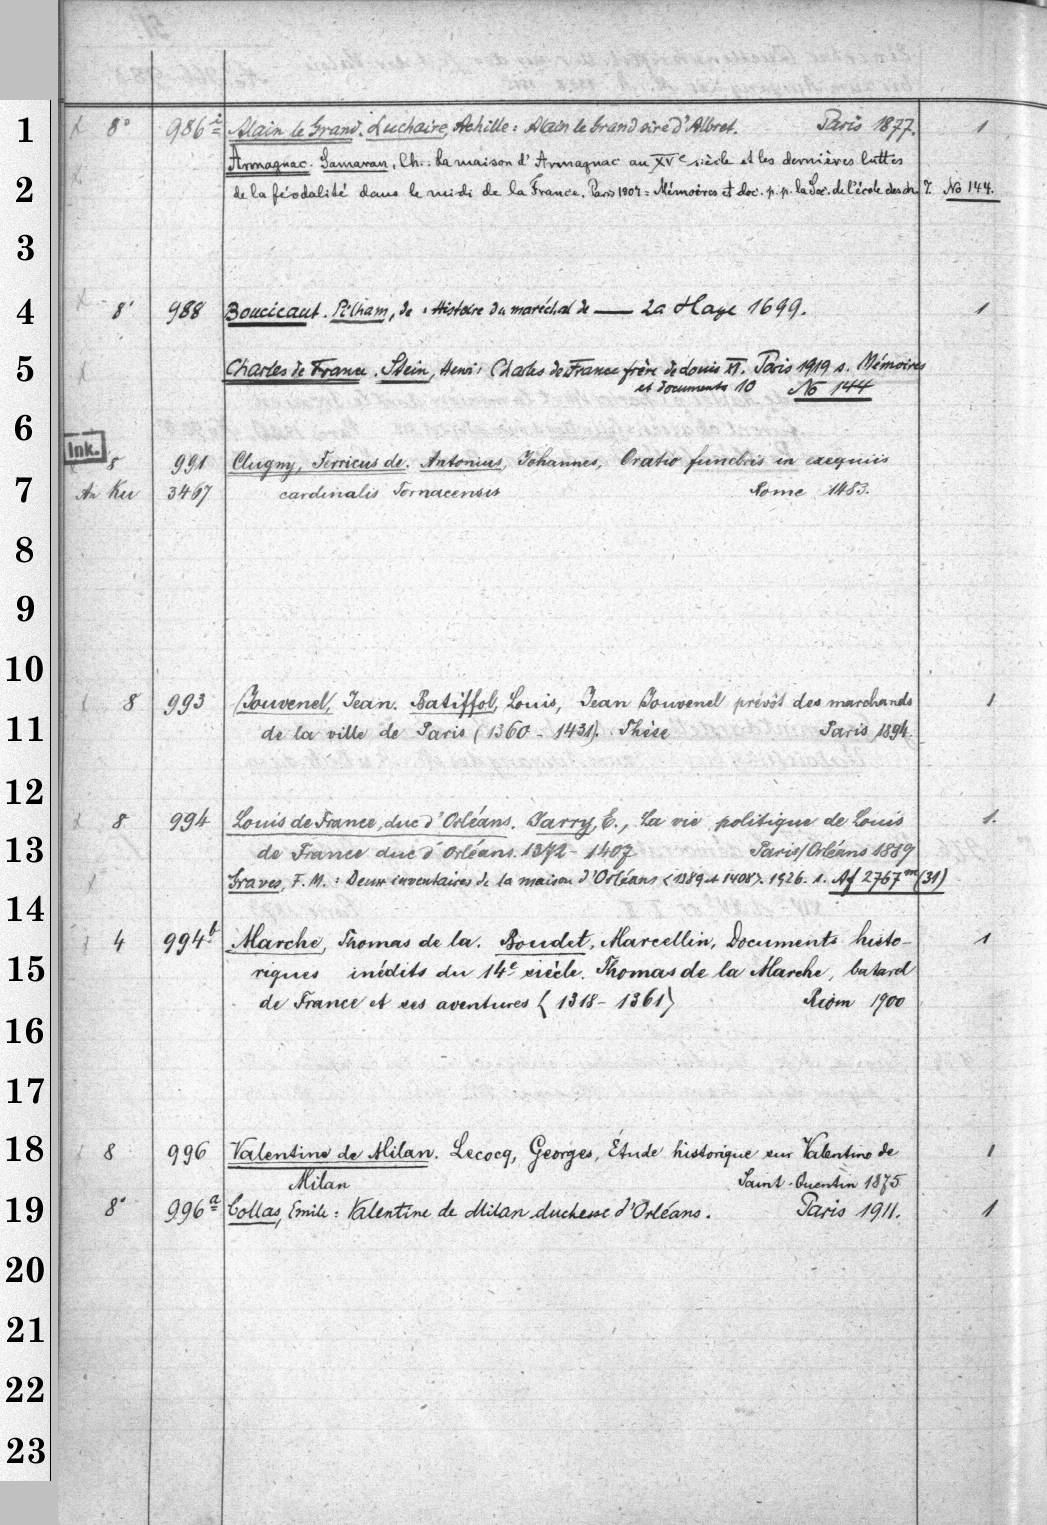 1 x 8° 986 i Alain le Grand. Luchaire, Achille: Alain le Grand sire d'Albret. Paris 1877. 1
x Armagnac. Samaran, Ch.: La maison d'Armagnac au XVe siècle et les dernières luttes
2 de la féodalité dans le midi de la France. Paris 1907 = Mémoires et doc. p. p. la Soc. de l'école des ch. 7. No 144.
3
4 x 8° 988 Boucicaut. Pilham, de: Histoire du maréchal de — La Haye 1699. 1
5 x Charles de France. Stein, Henri: Charles de France frère de Louis XI. Paris 1919 s. Mémoires
et documents 10 No 144
6
Ink. 8 991 Clugny, Ferricus de. Antonius, Johannes, Oratio funebris in exequiis
7 An Ku 3467 cardinalis Tornacensis Rome 1483.
8
9
10
x 8 993 Jouvenel, Jean. Batiffol, Louis, Jean Jouvenel prévôt des marchands 1
11 de la ville de Paris (1360 - 1431). Thèse Paris 1894.
12
x 8 994 Louis de France, duc d'Orléans. Jarry, E., La vie politique de Louis 1.
13 de France duc d'Orléans. 1372 - 1407 Paris/Orléans 1889
x Graves, F. M.: Deux inventaires de la maison d'Orléans <1389 et 1408>. 1926. s. Af 2767 m (31)
14
x 4 994 b Marche, Thomas de la. Boudet, Marcellin, Documents histo- 1
15 riques inédits du 14e siècle. Thomas de la Marche, batard
de France et ses aventures <1318 - 1361> Riom 1900
16
17
18 x 8 996 Valentine de Milan. Lecocq, Georges, Étude historique sur Valentine de 1
Milan Saint-Quentin 1875
19 8° 996 a Collas, Emile: Valentine de Milan duchesse d'Orléans. Paris 1911. 1
20
21
22
23